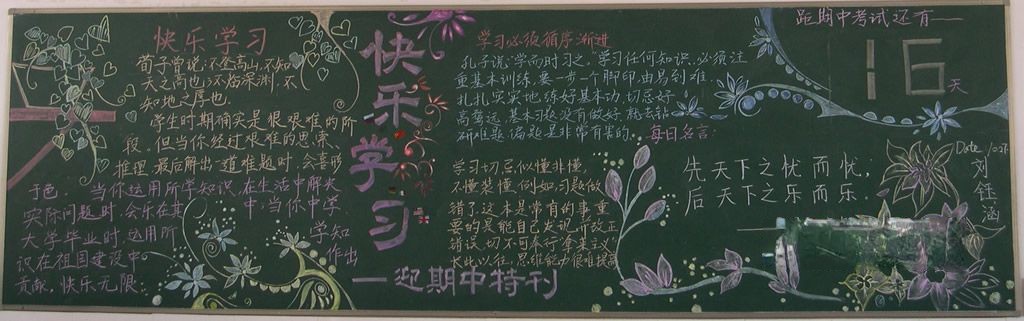 快乐学习
荀子曾说:不登高山,不知
天之高也;不临深渊,不
知地之厚也.
学生时期确实是很艰难的阶
段,但当你经过艰难的思索、
推理,最后解出一道难题时,会喜形
于色.当你运用所学知识,在生活中解决
实际问题时,会乐在其中;当你中学、
大学毕业时,运用所学知
识在祖国建设中作出
贡献,快乐无限.
快乐学习
——迎期中特刊
学习必须循序渐进
孔子说:“学而时习之.”学习任何知识,必须注
重基本训练,要一步一个脚印,由易到难,
扎扎实实地练好基本功,切忌好
高骛远,基本习题没有做好,就去钻
研难题、偏题是非常有害的。
学习切忌似懂非懂,
不懂装懂,例如:习题做
错了,这本是常有的事,重
要的是能自己发现,并改正
错误,切不可奉行“拿来主义”
长此以往,思维能力很难提高
每日名言:
先天下之忧而忧;
后天下之乐而乐.
距期中考试还有——
16天
Date
刘钰涵